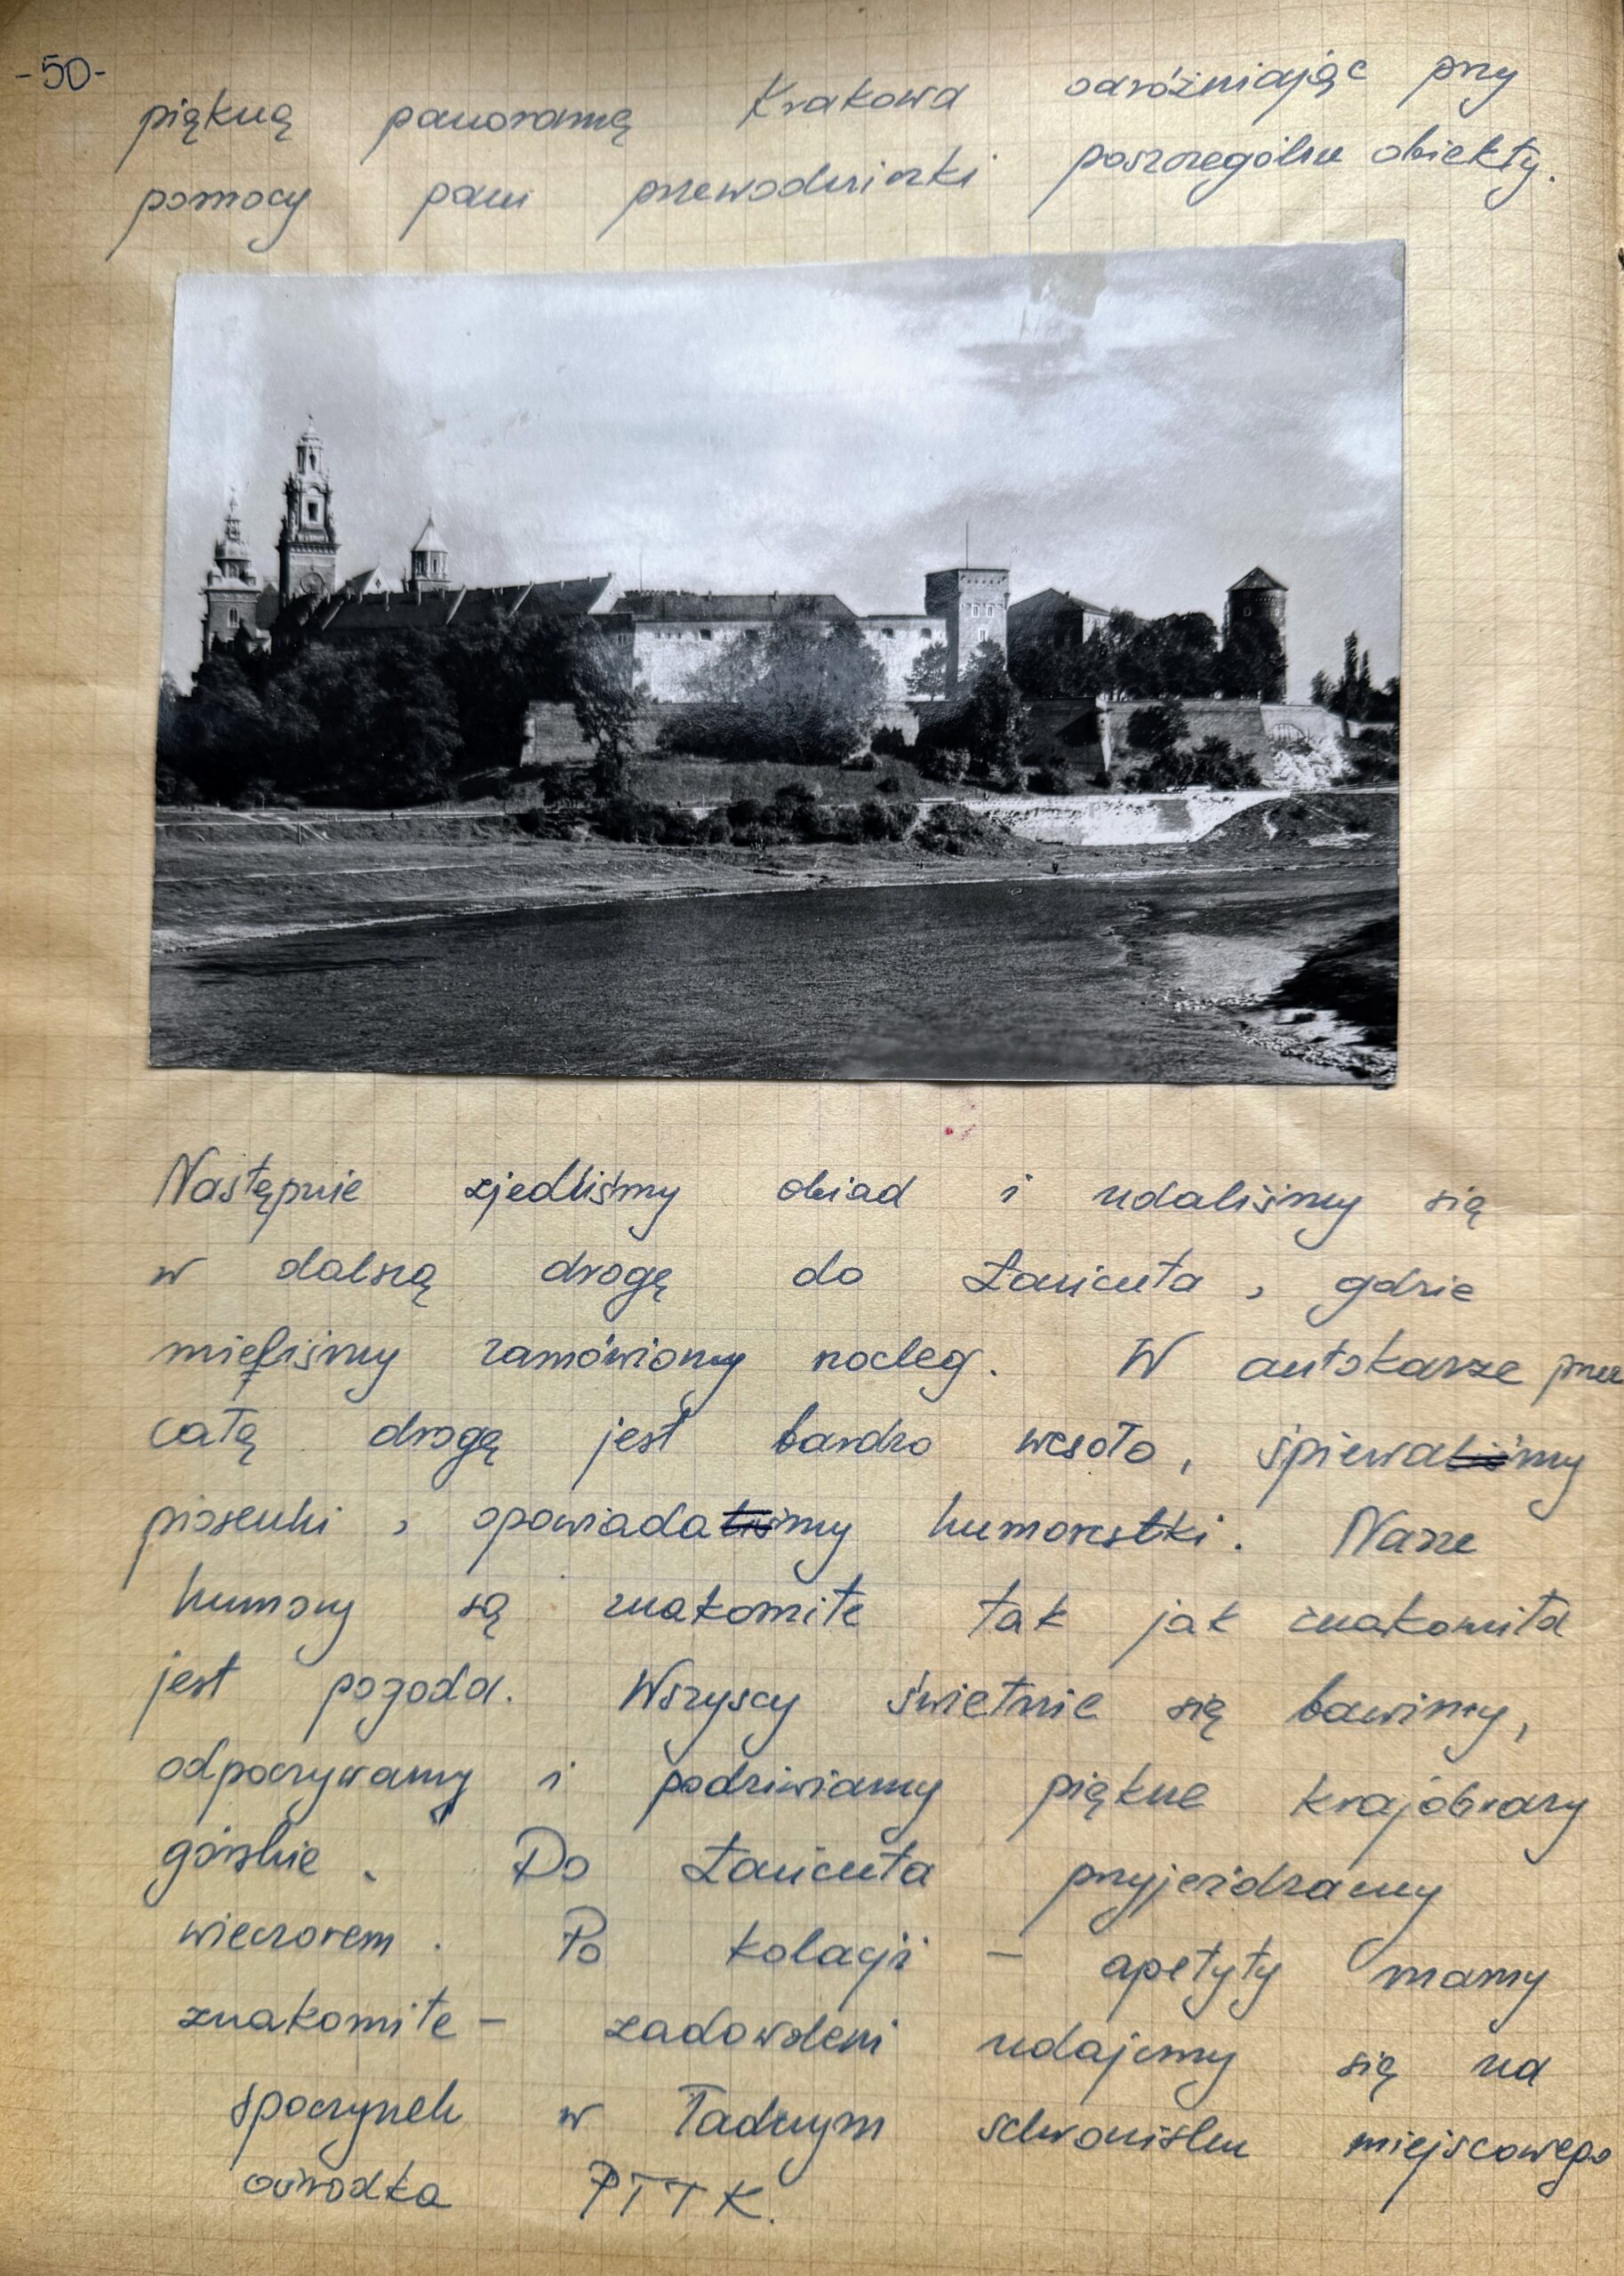 -50-
piękną panoramę Krakowa odróżniając przy
pomocy pani przewodniczki poszczególne obiekty.
Następnie zjedliśmy obiad i udaliśmy się
w dalszą drogę do Łańcuta, gdzie
mieliśmy zamówiony nocleg. W autokarze przez
całą drogę jest bardzo wesoło, śpiewamy
piosenki, opowiadamy humorestki. Nasze
humory są znakomite tak jak znakomita
jest pogoda. Wszyscy świetnie się bawimy,
odpoczywamy i podziwiamy piękne krajobrazy
górskie. Do Łańcuta przyjeżdżamy
wieczorem. Po kolacji – apetyty mamy
znakomite – zadowoleni udajemy się na
spoczynek w ładnym schronisku miejscowego
ośrodka PTTK.